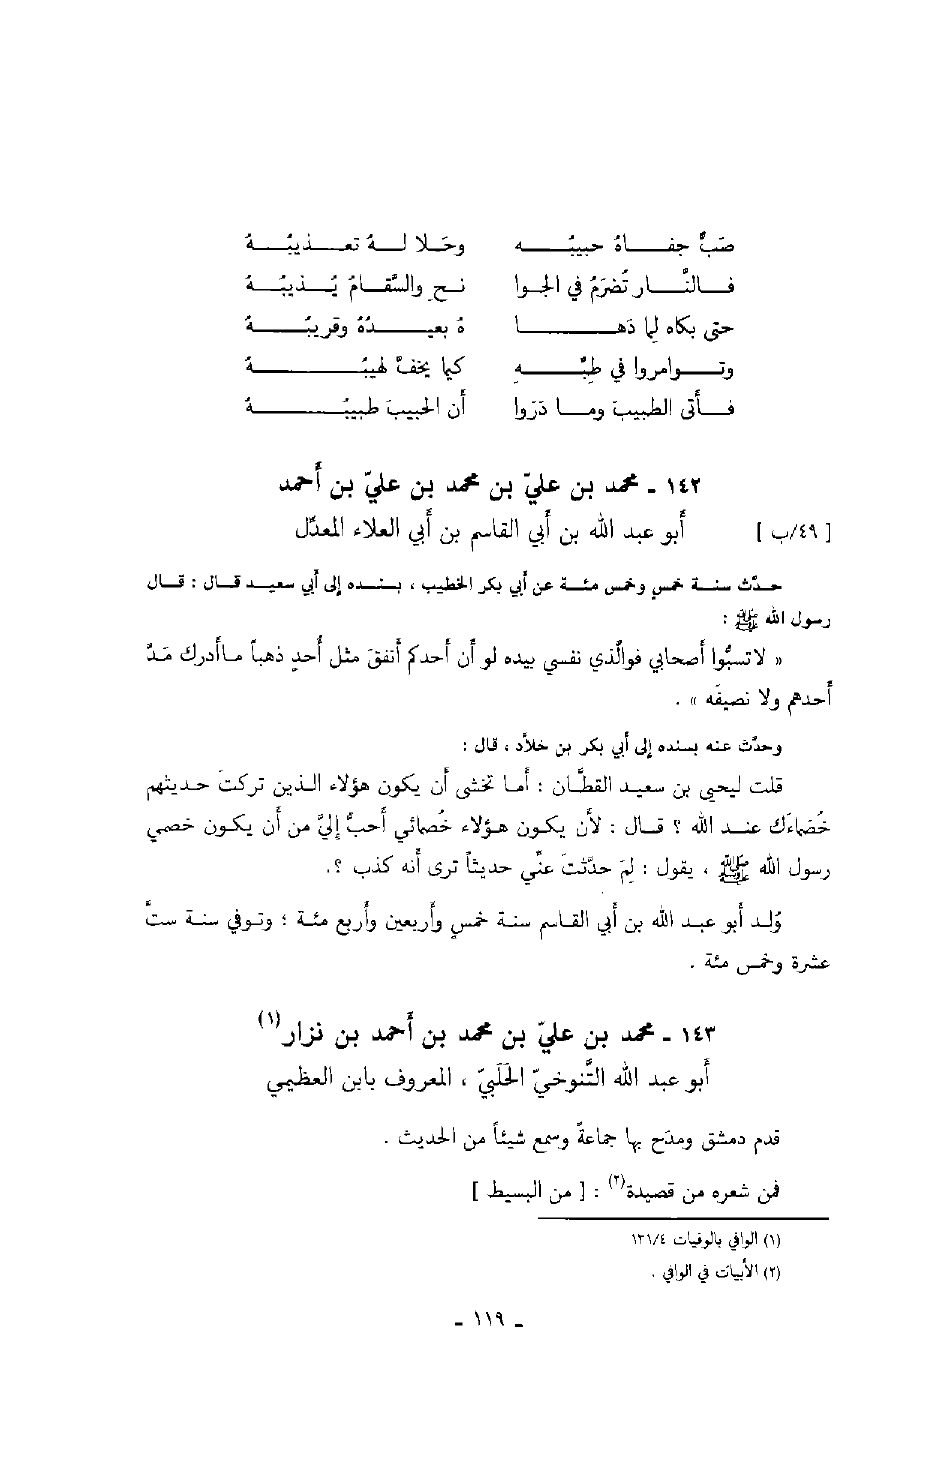 صَبٌّ جفاهُ حبيبُه وحَلا لهُ تعذيبُهُ
فالنَّار تُضرَمُ في الجوا نح والسَّقامُ يُذيبُهُ
حتى بكاه لِما دَها هُ بعيدُهُ وقريبُهُ
وتوامروا في طِبِّهِ كيما يخفَّ لهيبُهُ
فأتى الطبيبَ وما دَرَوا أن الحبيبَ طبيبُهُ
١٤٢ ـ محمد بن عليّ بن محمد بن عليّ بن أَحمد
[ ٤٩/ب ] أَبو عبد الله بن أَبي القاسم بن أَبي العلاء المعدّل
حدَّث سنة خمسٍ وخمس مئة عن أَبي بكر الخطيب ، بسنده إلى أبي سعيد قال : قال
رسول الله ﷺ :
« لاتسبُّوا أصحابي فوالَّذي نفسي بيده لو أن أحدكم أنفقَ مثل أُحدٍ ذهباً ماأدرك مَدَّ
أَحدهم ولا نصيفَه » .
وحدَّث عنه بسنده إلى أبي بكر بن خلاَّد ، قال :
قلت ليحيى بن سعيد القطَّان : أَما تخشى أَن يكون هؤلاء الذين تركتَ حديثهم
خُصَماءَك عند الله ؟ قال : لأَن يكون هؤلاء خُصائي أَحبُّ إليَّ من أَن يكون خصمي
رسول الله ﷺ ، يقول : لِمَ حدَّثتَ عنِّي حديثاً ترى أَنه كذب ؟.
وُلد أَبو عبد الله بن أَبي القاسم سنة خمسٍ وأَربعين وأَربع مئة ؛ وتوفي سنة ستَّ
عشرة وخمس مئة .
١٤٣ ـ محمد بن عليّ بن محمد بن أَحمد بن نزار(١)
أَبو عبد الله التَّنوخيّ الحَلَبيّ ، المعروف بابن العظيمي
قدم دمشق ومدَح بها جماعةً وسمع شيئاً من الحديث .
فمن شعره من قصيدة(٢) : [ من البسيط ]
(١) الوافي بالوفيات ١٣١/٤
(٢) الأبيات في الوافي .
ـ ١١٩ ـ